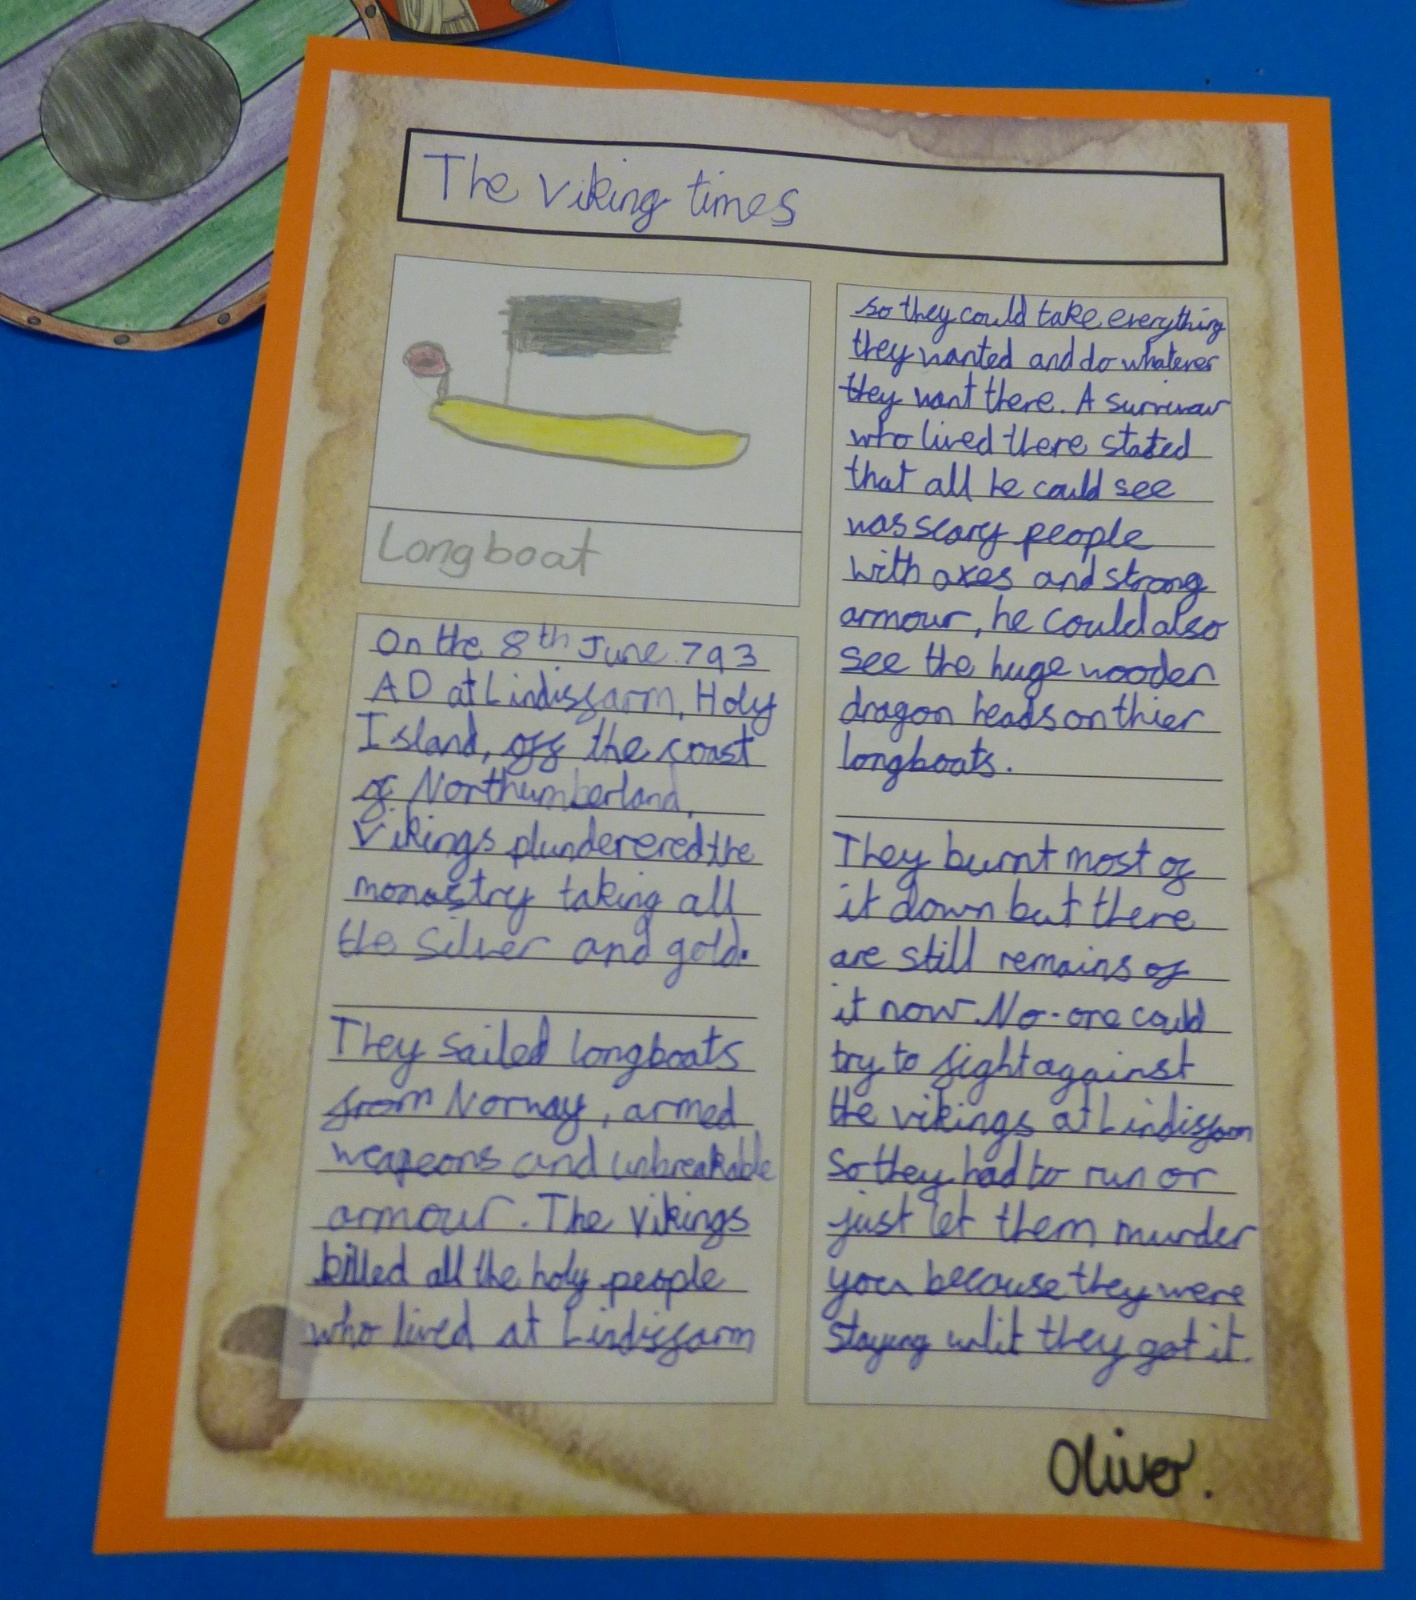 The Viking times
Longboat
On the 8th June 793
AD at Lindissfarm, Holy
Island, off the coast
of Northumberland,
Vikings plunderered the
monastry taking all
the silver and gold.
They sailed longboats
from Norway, armed
weapeons and unbreakable
armour. The Vikings
killed all the holy people
who lived at Lindissfarm
so they could take everything
they wanted and do whatever
they want there. A survivar
who lived there stated
that all he could see
was scary people
with axes and strong
armour, he could also
see the huge wooden
dragon heads on thier
longboats.
They burnt most of
it down but there
are still remains of
it now. No-one could
try to fight against
the vikings at Lindissfarm
so they had to run or
just let them murder
you because they were
staying until they got it.
Oliver.